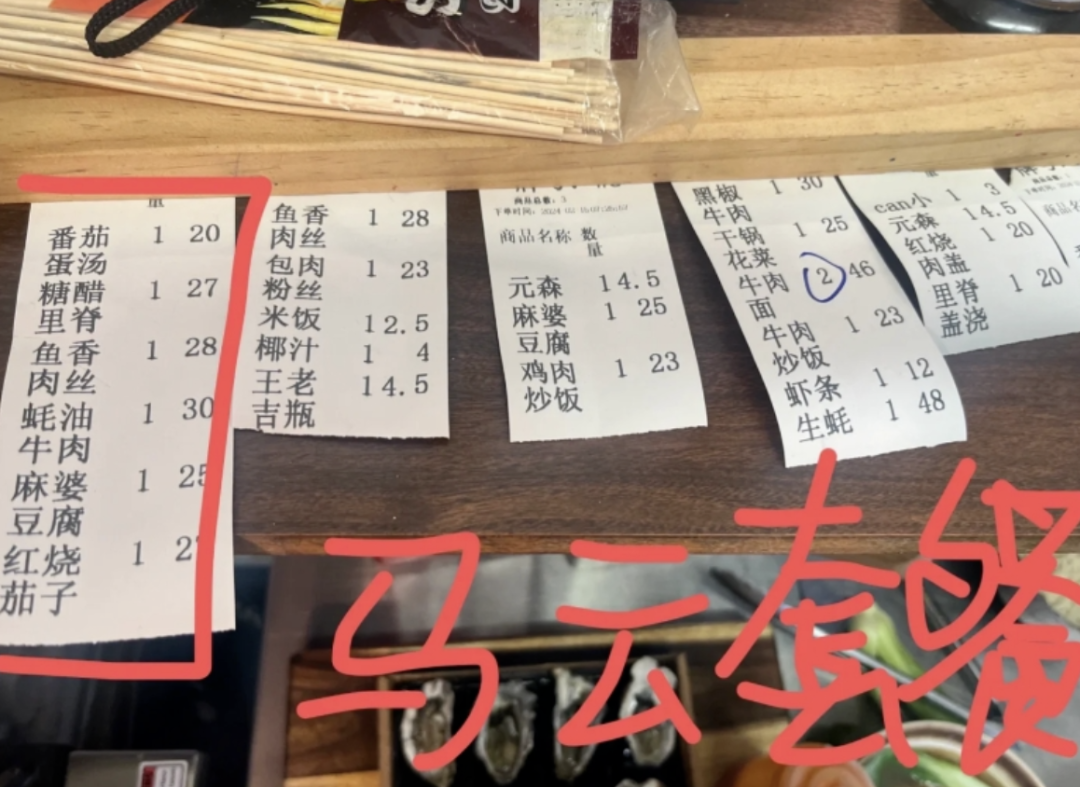 量
番茄 1 20
蛋汤
糖醋 1 27
里脊
鱼香 1 28
肉丝
蚝油 1 30
牛肉
麻婆 1 25
豆腐
红烧 1 2
茄子
鱼香 1 28
肉丝
包肉 1 23
粉丝
米饭 12.5
椰汁 1 4
王老 14.5
吉瓶
商品总数: 3
下单时间: 2024
商品名称 数
量
元森 14.5
麻婆 1 25
豆腐
鸡肉 1 23
炒饭
黑椒 1 30
牛肉
干锅 1 25
花菜
牛肉 2 46
面
牛肉 1 23
炒饭
虾条 1 12
生蚝 1 48
can小 1 3
元森 14.5
红烧 1 20
肉盖
里脊 1 20
盖浇
商品
马云套餐